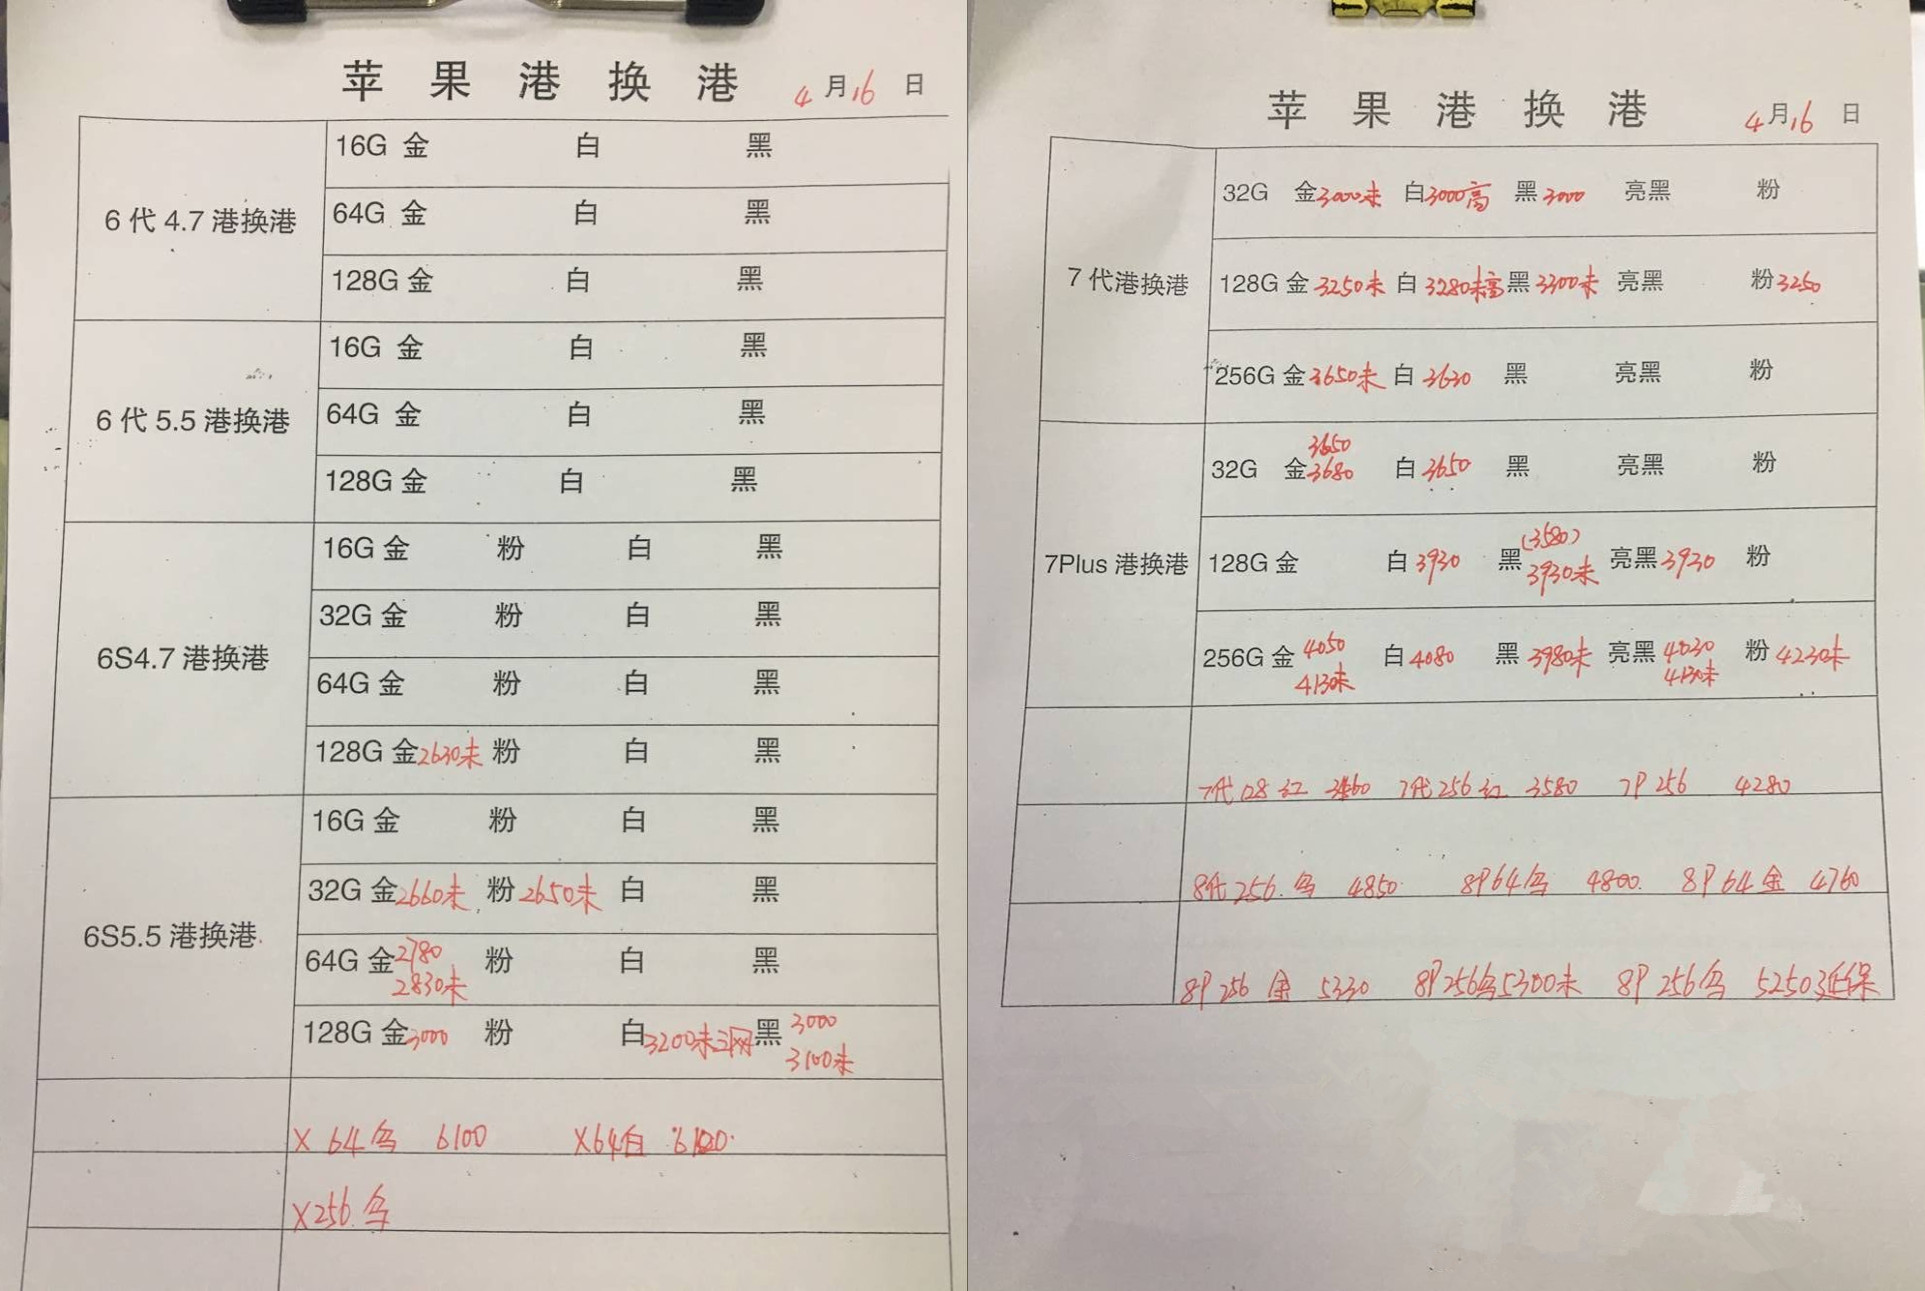 苹果港换港 4月16日
6代4.7港换港
16G 金 白 黑
64G 金 白 黑
128G 金 白 黑
6代5.5港换港
16G 金 白 黑
64G 金 白 黑
128G 金 白 黑
6S4.7港换港
16G 金 粉 白 黑
32G 金 粉 白 黑
64G 金 粉 白 黑
128G 金2630未 粉 白 黑
6S5.5港换港
16G 金 粉 白 黑
32G 金2660未 粉2650未 白 黑
64G 金2780 粉 白 黑
2830未
128G 金3000 粉 白3200未三网 黑3000
3100未
X 64 6100 X64白
X256
苹果港换港 4月16日
7代港换港
32G 金3000未 白3000高 黑3000 亮黑 粉
128G 金3250未 白3280未高 黑3300未 亮黑 粉3250
256G 金3650未 白3630 黑 亮黑 粉
7Plus港换港
3650
32G 金3680 白3650 黑 亮黑 粉
(3580)
128G 金 白3930 黑3930未 亮黑3930 粉
256G 金4050 白4080 黑3980未 亮黑4030 粉4230未
4130未 4130未
7代128红 7代256红 3580 7P 256 4280
8代256 4850 8P64 4800 8P64金 4760
8P 256 金 5330 8P 256 5300未 8P 256 5250延保